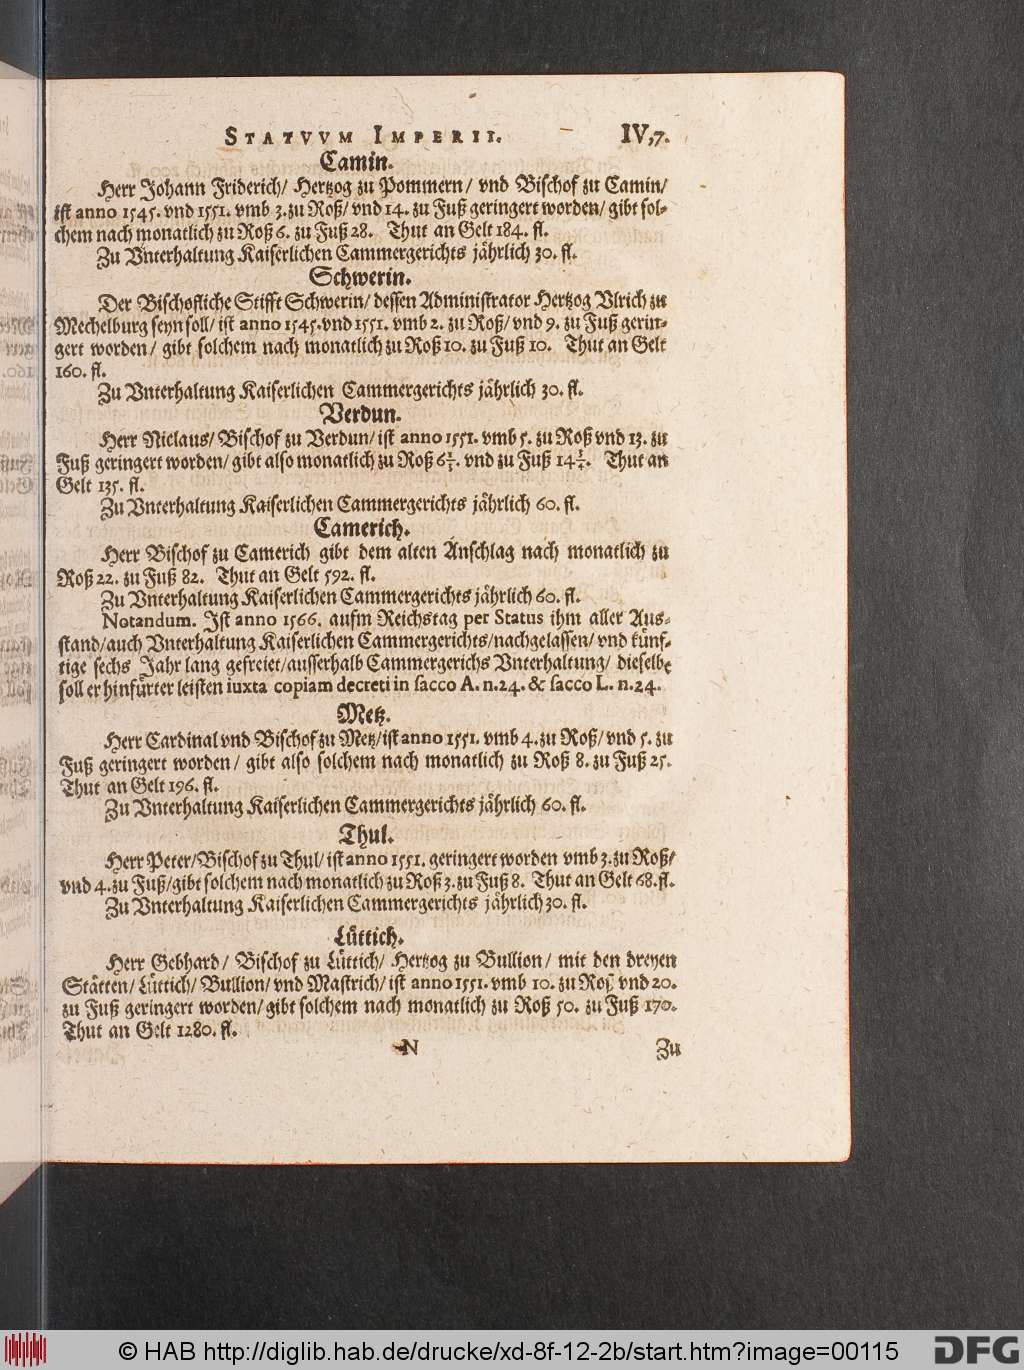 STATVVM IMPERII. IV,7.
Camin.
Herr Johann Friderich/ Hertzog zu Pommern/ vnd Bischof zu Camin/
ist anno 1545. vnd 1551. vmb 3. zu Roß/ vnd 14. zu Fuß geringert worden/ gibt sol-
chem nach monatlich zu Roß 6. zu Fuß 28. Thut an Gelt 184. fl.
Zu Vnterhaltung Kaiserlichen Cammergerichts jährlich 30. fl.
Schwerin.
Der Bischofliche Stifft Schwerin/ dessen Administrator Hertzog Vlrich zu
Mechelburg seyn soll/ ist anno 1545. vnd 1551. vmb 2. zu Roß/ vnd 9. zu Fuß gerin-
gert worden/ gibt solchem nach monatlich zu Roß 10. zu Fuß 10. Thut an Gelt
160. fl.
Zu Vnterhaltung Kaiserlichen Cammergerichts jährlich 30. fl.
Verdun.
Herr Niclaus/ Bischof zu Verdun/ ist anno 1551. vmb 5. zu Roß vnd 13. zu
Fuß geringert worden/ gibt also monatlich zu Roß 6 vnd zu Fuß 14 Thut an
Gelt 135. fl.
Zu Vnterhaltung Kaiserlichen Cammergerichts jährlich 60. fl.
Camerich.
Herr Bischof zu Camerich gibt dem alten Anschlag nach monatlich zu
Roß 22. zu Fuß 82. Thut an Gelt 592. fl.
Zu Vnterhaltung Kaiserlichen Cammergerichts jährlich 60. fl.
Notandum. Ist anno 1566. aufm Reichstag per Status ihm aller Aus-
stand/ auch Vnterhaltung Kaiserlichen Cammergerichts/ nachgelassen/ vnd künf-
tige sechs Jahr lang gefreiet/ ausserhalb Cammergerichs Vnterhaltung/ dieselbe
soll er hinfürter leisten iuxta copiam decreti in sacco A. n. 24. & sacco L. n. 24.
Metz.
Herr Cardinal vnd Bischof zu Metz/ ist anno 1551. vmb 4. zu Roß/ vnd 5. zu
Fuß geringert worden/ gibt also solchem nach monatlich zu Roß 8. zu Fuß 25.
Thut an Gelt 196. fl.
Zu Vnterhaltung Kaiserlichen Cammergerichts jährlich 60. fl.
Thul.
Herr Peter/ Bischof zu Thul/ ist anno 1551. geringert worden vmb 3. zu Roß/
vnd 4. zu Fuß/ gibt solchem nach monatlich zu Roß 3. zu Fuß 8. Thut an Gelt 68. fl.
Zu Vnterhaltung Kaiserlichen Cammergerichts jährlich 30. fl.
Lüttich.
Herr Gebhard/ Bischof zu Lüttich/ Hertzog zu Bullion/ mit den dreyen
Stätten/ Lüttich/ Bullion/ vnd Mastrich/ ist anno 1551. vmb 10. zu Roß vnd 20.
zu Fuß geringert worden/ gibt solchem nach monatlich zu Roß 50. zu Fuß 170.
Thut an Gelt 1280. fl.
N Zu
© HAB http://diglib.hab.de/drucke/xd-8f-12-2b/start.htm?image=00115
DFG